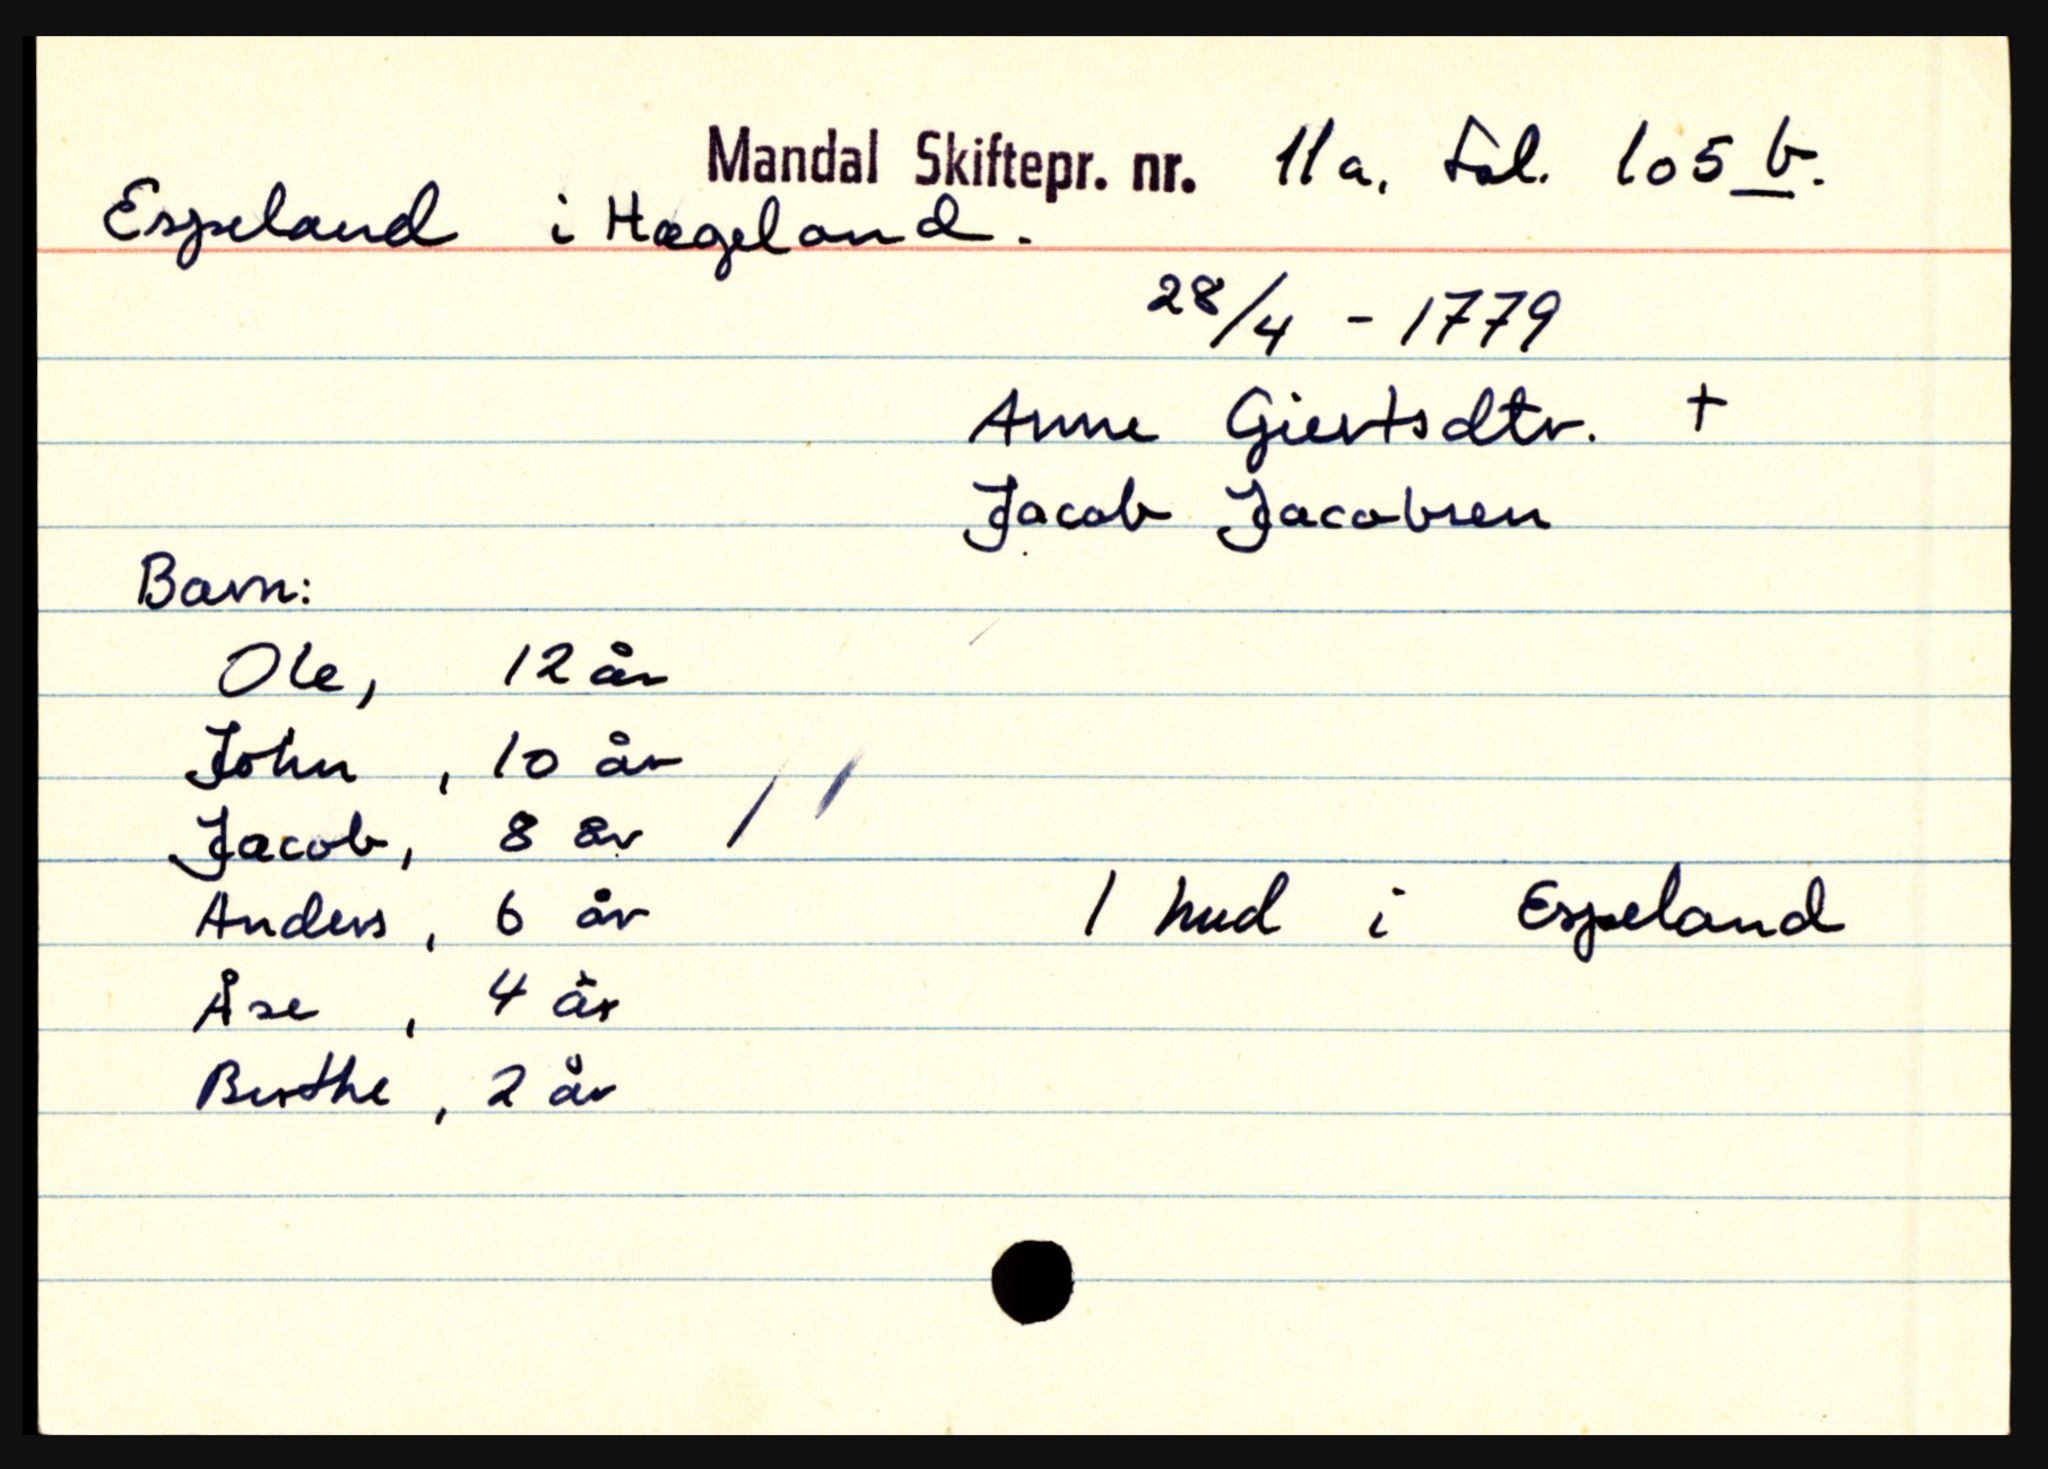 Mandal Skiftepr. nr. 11a. Fol. 105 b.
Espeland i Hægeland.
28/4 - 1779
Anne Giertsdtr. +
Jacob Jacobsen
Barn:
Ole, 12 år
John, 10 år
Jacob, 8 år
Anders, 6 år 1 hud i Espeland
Åse, 4 år
Berthe, 2 år